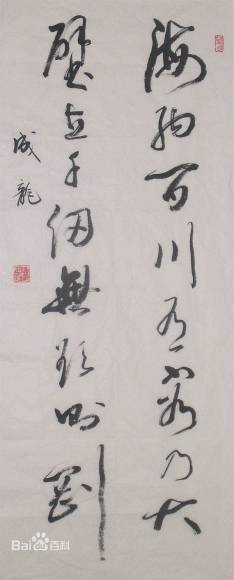 海納百川有容乃大
壁立千仞無欲則剛
成龍
Bai百科